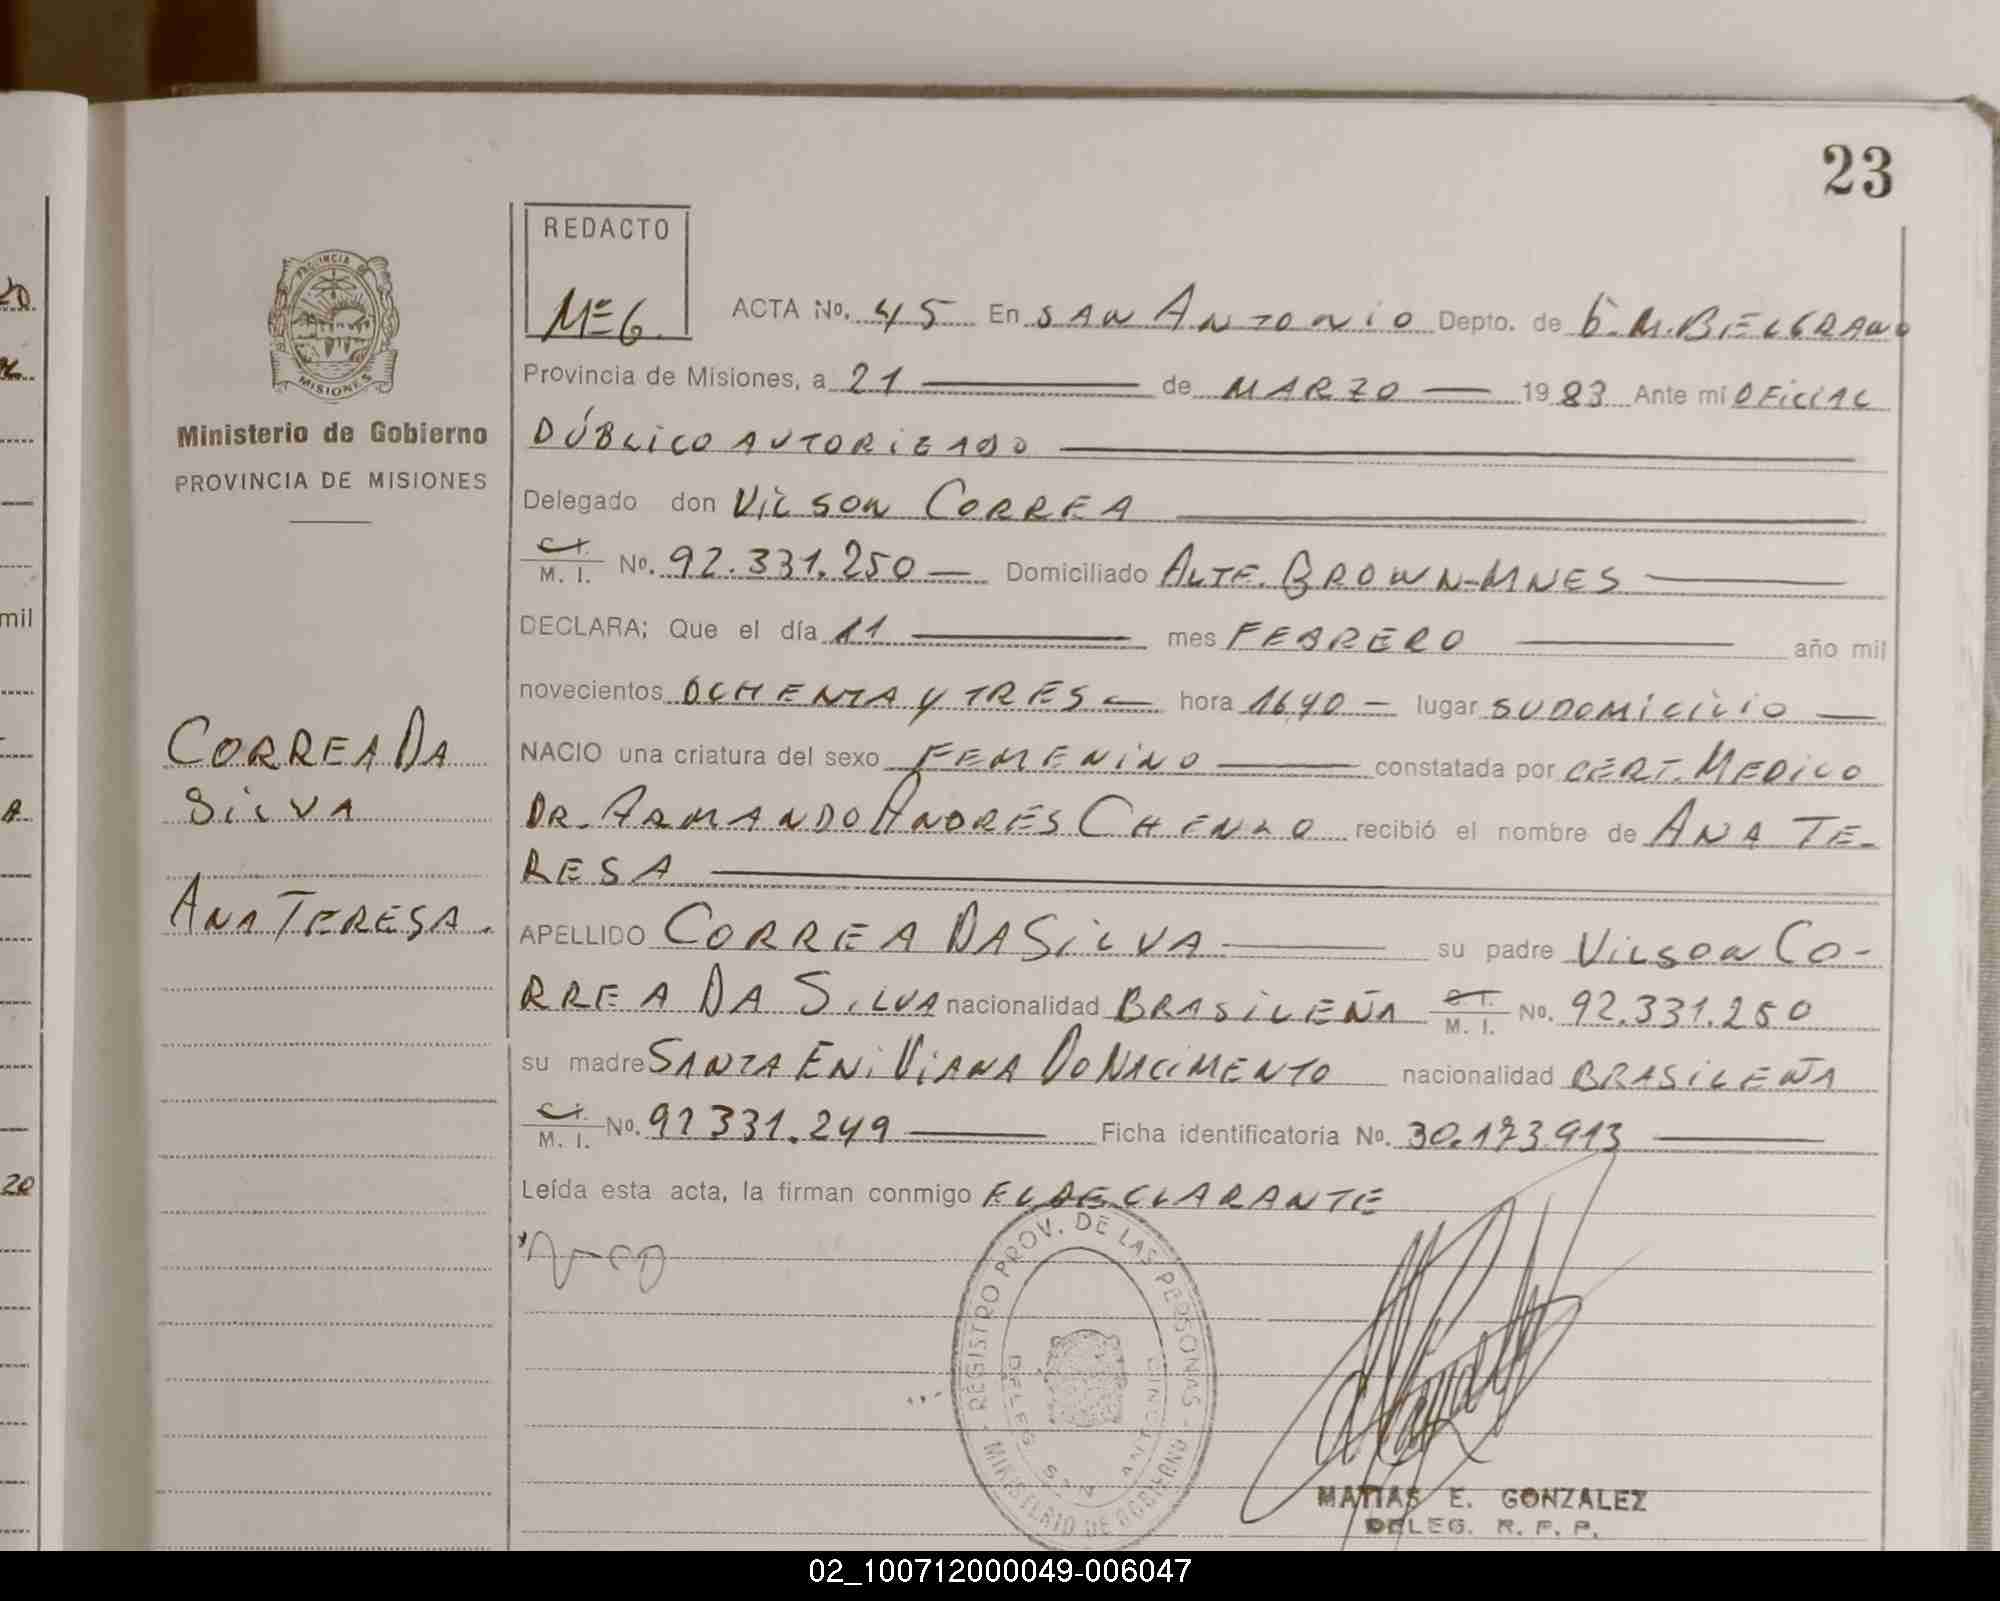 23
REDACTO
Mº 6
PROVINCIA DE
MISIONES
Ministerio de Gobierno
PROVINCIA DE MISIONES
ACTA No. 45 En SAN ANTONIO Depto. de G. M. BELGRANO
Provincia de Misiones, a 21 de MARZO 1983 Ante mí OFICIAL
PÚBLICO AUTORIZADO
Delegado don VILSON CORREA
C.I. M. I. No. 92.331.250 Domiciliado ALTE. BROWN-MNES
DECLARA; Que el día 11 mes FEBRERO año mil
novecientos OCHENTA Y TRES hora 16,40 lugar SU DOMICILIO
NACIO una criatura del sexo FEMENINO constatada por CERT. MEDICO
DR. ARMANDO ANDRES recibió el nombre de ANA TE-
RESA
APELLIDO CORREA DA SILVA su padre VILSON CO-
RREA DA SILVA nacionalidad BRASILEÑA C.I. M. I. No. 92.331.250
su madre SANTA ENI VIANA DO NACIMENTO nacionalidad BRASILEÑA
C.I. M. I. No. 92 331.249 Ficha identificatoria No. 30.173.913
Leída esta acta, la firman conmigo EL DECLARANTE
CORREA DA
SILVA
ANA TERESA.
REGISTRO PROV. DE LAS PERSONAS - MINISTERIO DE GOBIERNO -
DELEG. SAN ANTONIO
MATIAS E. GONZALEZ
DELEG. R. P. P.
mil
20
02_100712000049-006047